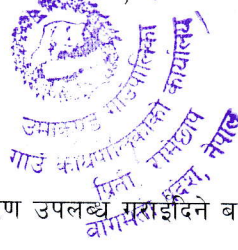 उमाकुण्ड गाउँपालिका
गाउँ कार्यपालिकाको कार्यालय
प्रिती, रामेछाप
बागमती प्रदेश, नेपाल
ण उपलब्ध गराईदिने ब